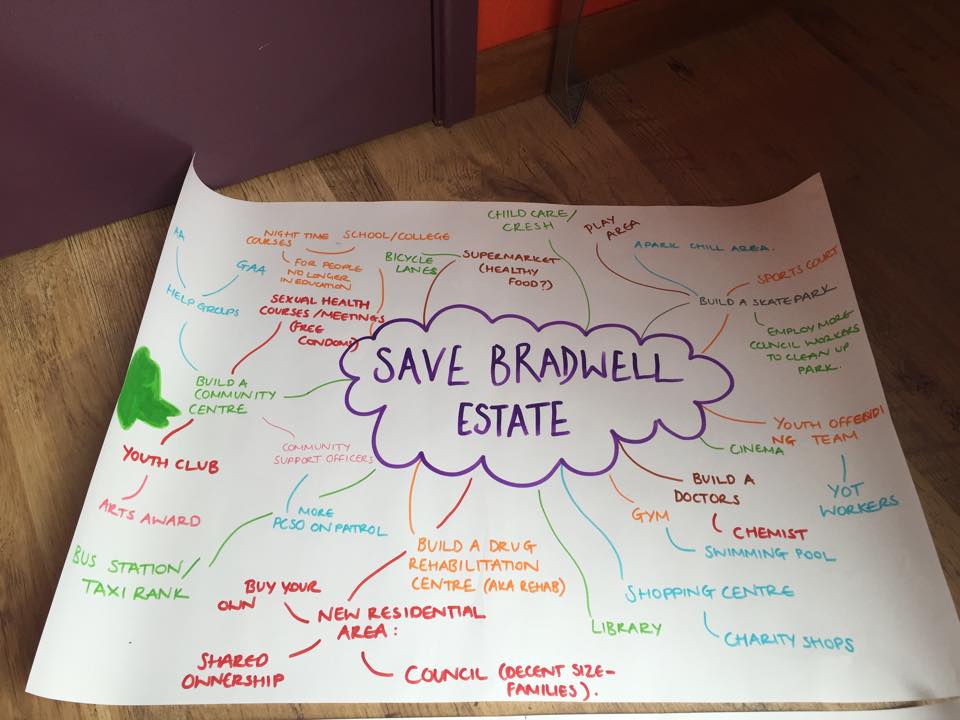 SAVE BRADWELL
ESTATE
CHILD CARE/
CRESH
PLAY
AREA
A PARK CHILL AREA.
SPORTS COURT
BUILD A SKATEPARK
EMPLOY MORE
COUNCIL WORKERS
TO CLEAN UP
PARK.
YOUTH OFFENDI
NG TEAM
YOT
WORKERS
CINEMA
BUILD A
DOCTORS
CHEMIST
GYM
SWIMMING POOL
SHOPPING CENTRE
CHARITY SHOPS
LIBRARY
BUILD A DRUG
REHABILITATION
CENTRE (AKA REHAB)
NEW RESIDENTIAL
AREA:
BUY YOUR
OWN
SHARED
OWNERSHIP
COUNCIL (DECENT SIZE-
FAMILIES).
MORE
PCSO ON PATROL
BUS STATION/
TAXI RANK
COMMUNITY
SUPPORT OFFICERS
BUILD A
COMMUNITY
CENTRE
YOUTH CLUB
ARTS AWARD
HELP GROUPS
AA
GAA
SEXUAL HEALTH
COURSES/MEETINGS
(FREE
CONDOMS)
NIGHT TIME
COURSES
SCHOOL/COLLEGE
FOR PEOPLE
NO LONGER
IN EDUCATION
BICYCLE
LANES
SUPERMARKET
(HEALTHY
FOOD?)